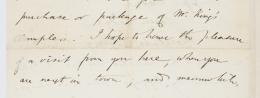 purchase or package of Mr. King's
complex. I hope to have the pleasure
of a visit from you here, when you
are next in town, and meanwhile